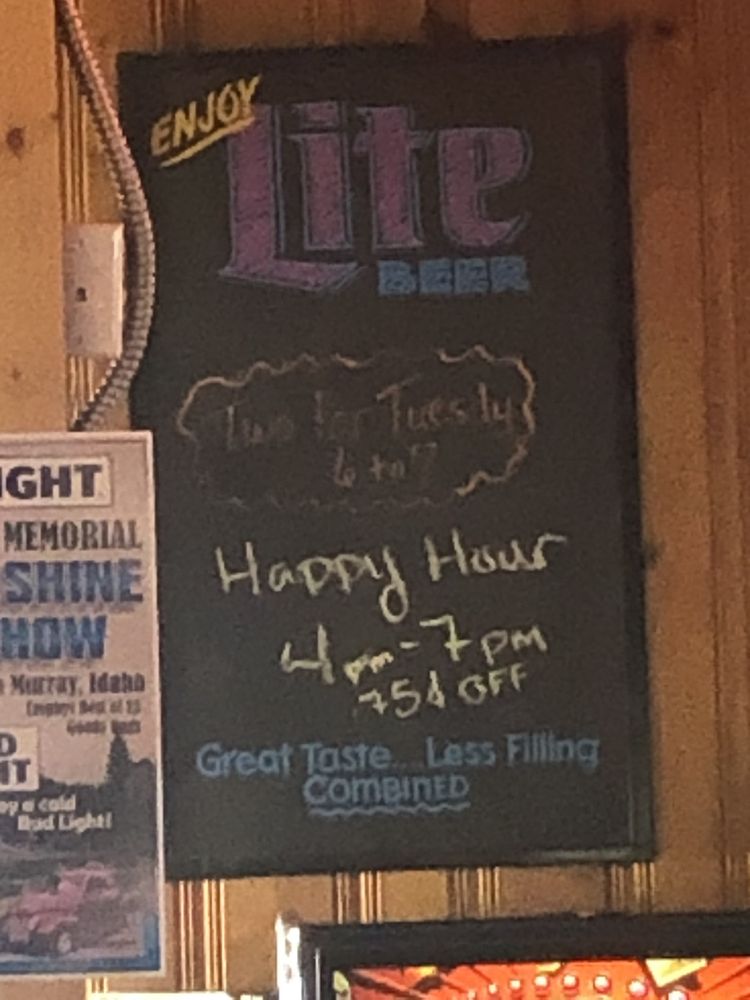 ENJOY
Lite
BEER
Two for Tuesday
6 to 7
Happy Hour
4pm-7pm
75¢ OFF
Great Taste...Less Filling
COMBINED
IGHT
MEMORIAL
SHINE
HOW
Murray, Idaho
Goody Bags
D
IT
oy a cold
Bud Light!